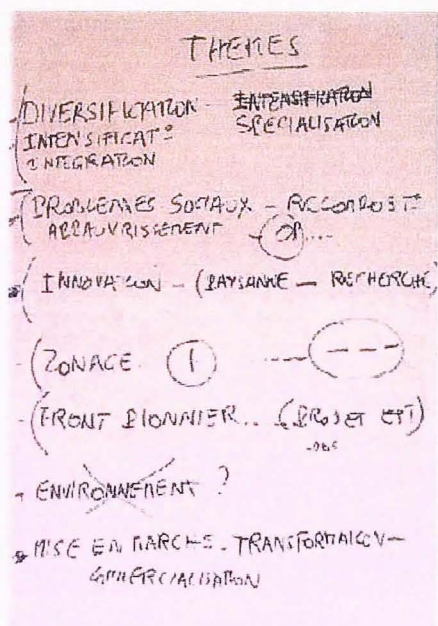 THEMES
- DIVERSIFICATION - INTENSIFICATION
SPECIALISATION
INTENSIFICATº
INTEGRATION
- PROBLEMES SOCIAUX - RECOMPOSITº
APPAUVRISSEMENT - OP....
INNOVATION - (PAYSANNE - RECHERCHE)
- ZONAGE
- FRONT PIONNIER... (PROJET
- ENVIRONNEMENT ?
MISE EN MARCHE - TRANSFORMATION -
COMMERCIALISATION